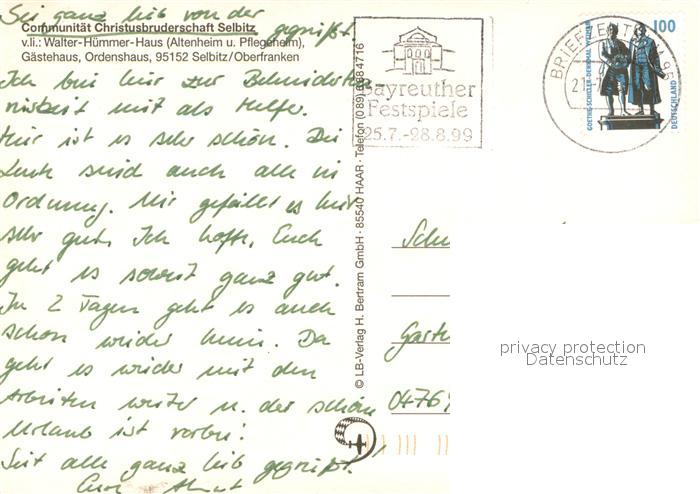 Sei ganz lieb von der gegrüßt
Communität Christusbruderschaft Selbitz
v.li.: Walter-Hümmer-Haus (Altenheim u. Pflegeheim),
Gästehaus, Ordenshaus, 95152 Selbitz/Oberfranken
Ich bin hier zur Behinderten
mit als Helfer.
Hier ist es sehr schön. Die
Leute sind auch alle in
Ordnung. Mir gefällt es hier
sehr gut. Ich hoffe, Euch
geht es soweit ganz gut.
In 2 Tagen geht es auch
schon wieder heim. Da
geht es wieder mit den
Arbeiten weiter u. der schöne
Urlaub ist vorbei!
Seit alle ganz lieb gegrüßt!
Euer
© LB-Verlag H. Bertram GmbH · 85540 HAAR · Telefon (0 89) 6884716
Bayreuther
Festspiele
25.7.-28.8.99
BRIEFZENTRUM 95
21
GOETHE-SCHILLER-DENKMAL WEIMAR
100
DEUTSCHLAND
Garte
privacy protection
Datenschutz